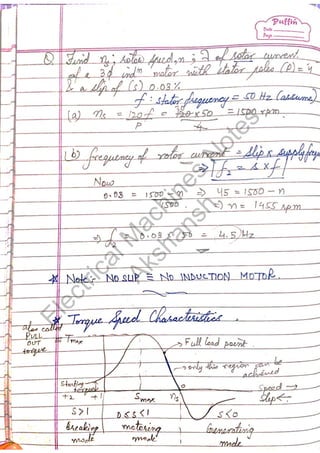 Puffin
Date
Page
Q Find ns; rotor speed, n ; & of rotor current
of a 3φ indn motor with stator poles (P) = 4
& a slip of (s) 0.03%.
f : stator frequency = 50 Hz (assume)
(a) ns = 120f / P = 120 x 50 / 4 = 1500 rpm
(b) frequency of rotor current = slip x supply freq
⇒ f2 = s x f
Now
0.03 = 1500 - n / 1500 ⇒ 45 = 1500 - n
⇒ n = 1455 rpm
⇒ f2 = 0.03 x 50 = 4.5 Hz
* Note:- NO SLIP ≡ NO INDUCTION MOTOR.
* Torque Speed Characteristics.
also called PULL OUT torque
= Tmax
→ Full load point.
→ only this region can be achieved
Starting torque
0
Speed →
+2 +1 Smax ns Slip ←
S>1 0≤S≤1 S<0
breaking mode motoring mode Generating mode
Electrical Machines Notes
Akshansh